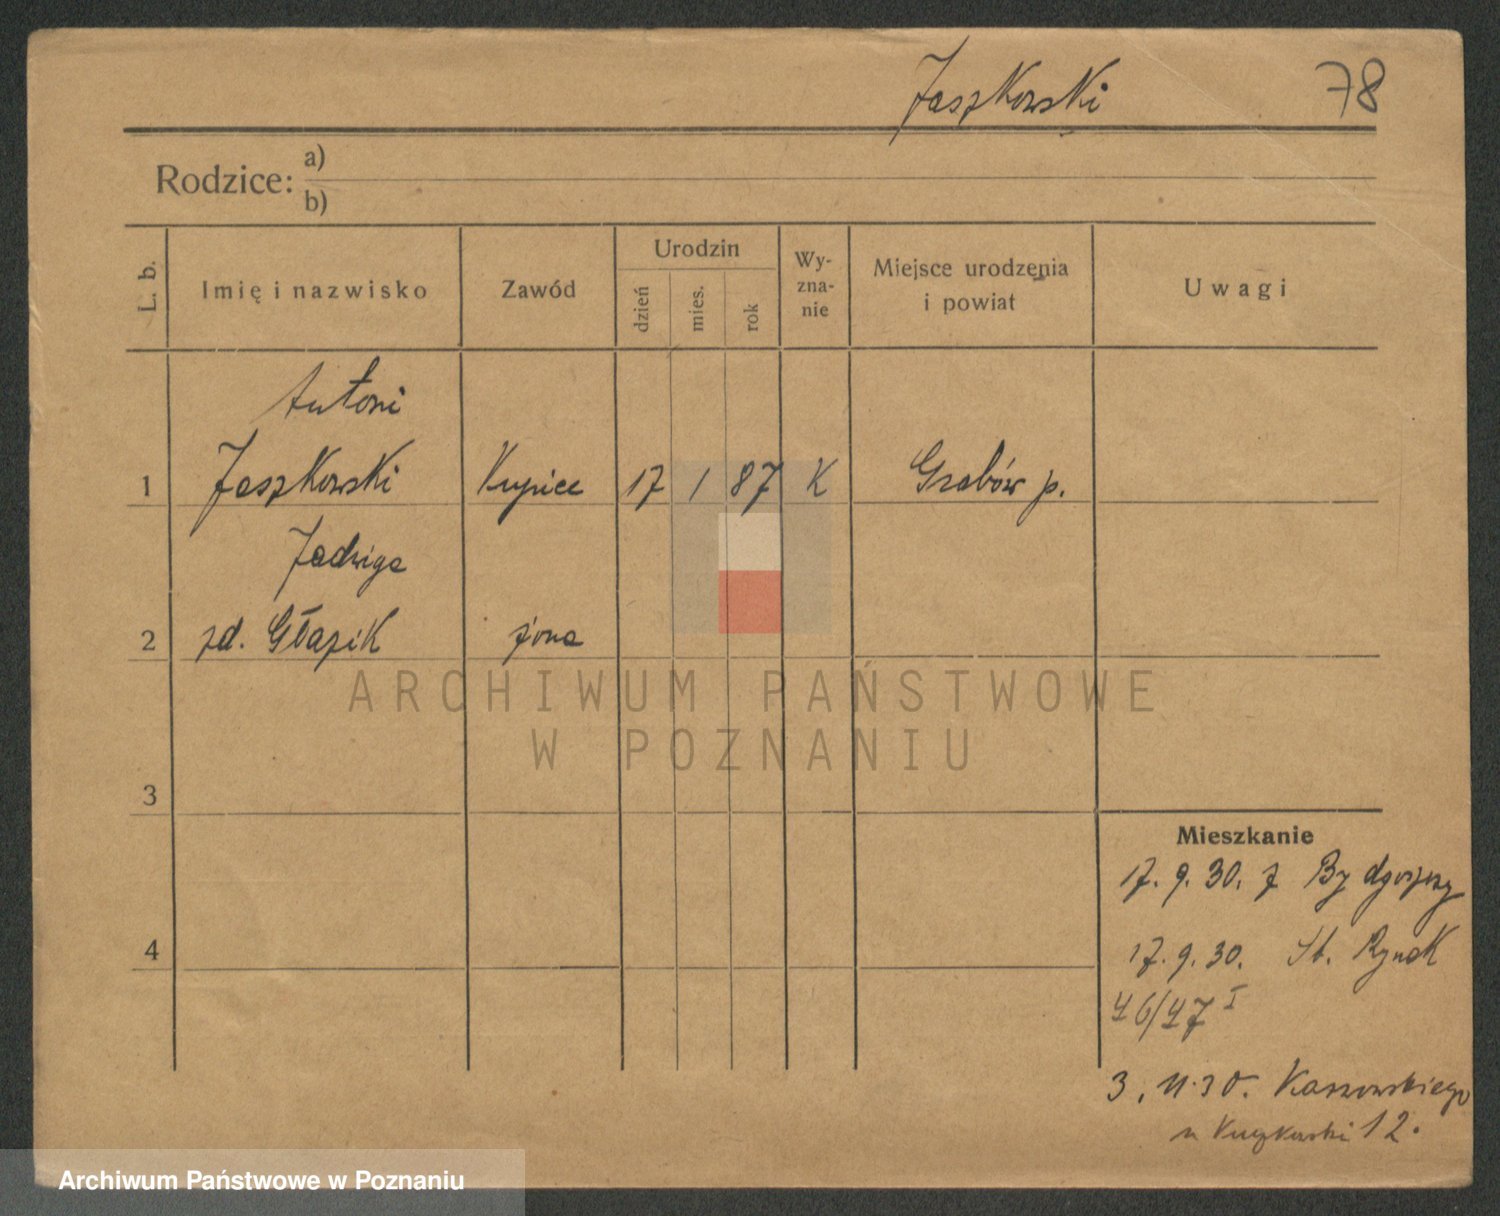 Jaszkowski 78
Rodzice: a)
b)
L. b. Imię i nazwisko Zawód Urodzin dzień mies. rok Wy-zna-nie Miejsce urodzenia i powiat Uwagi
Antoni
1 Jaszkowski Kupiec 17 1 87 K Grabów p.
Jadwiga
2 zd. Głazik żona
ARCHIWUM PAŃSTWOWE
W POZNANIU
3
Mieszkanie
17. 9. 30. z Bydgoszczy
4 17. 9. 30. St. Rynek
46/47 I
3. 11. 30. Kassowskiego
u 12.
Archiwum Państwowe w Poznaniu